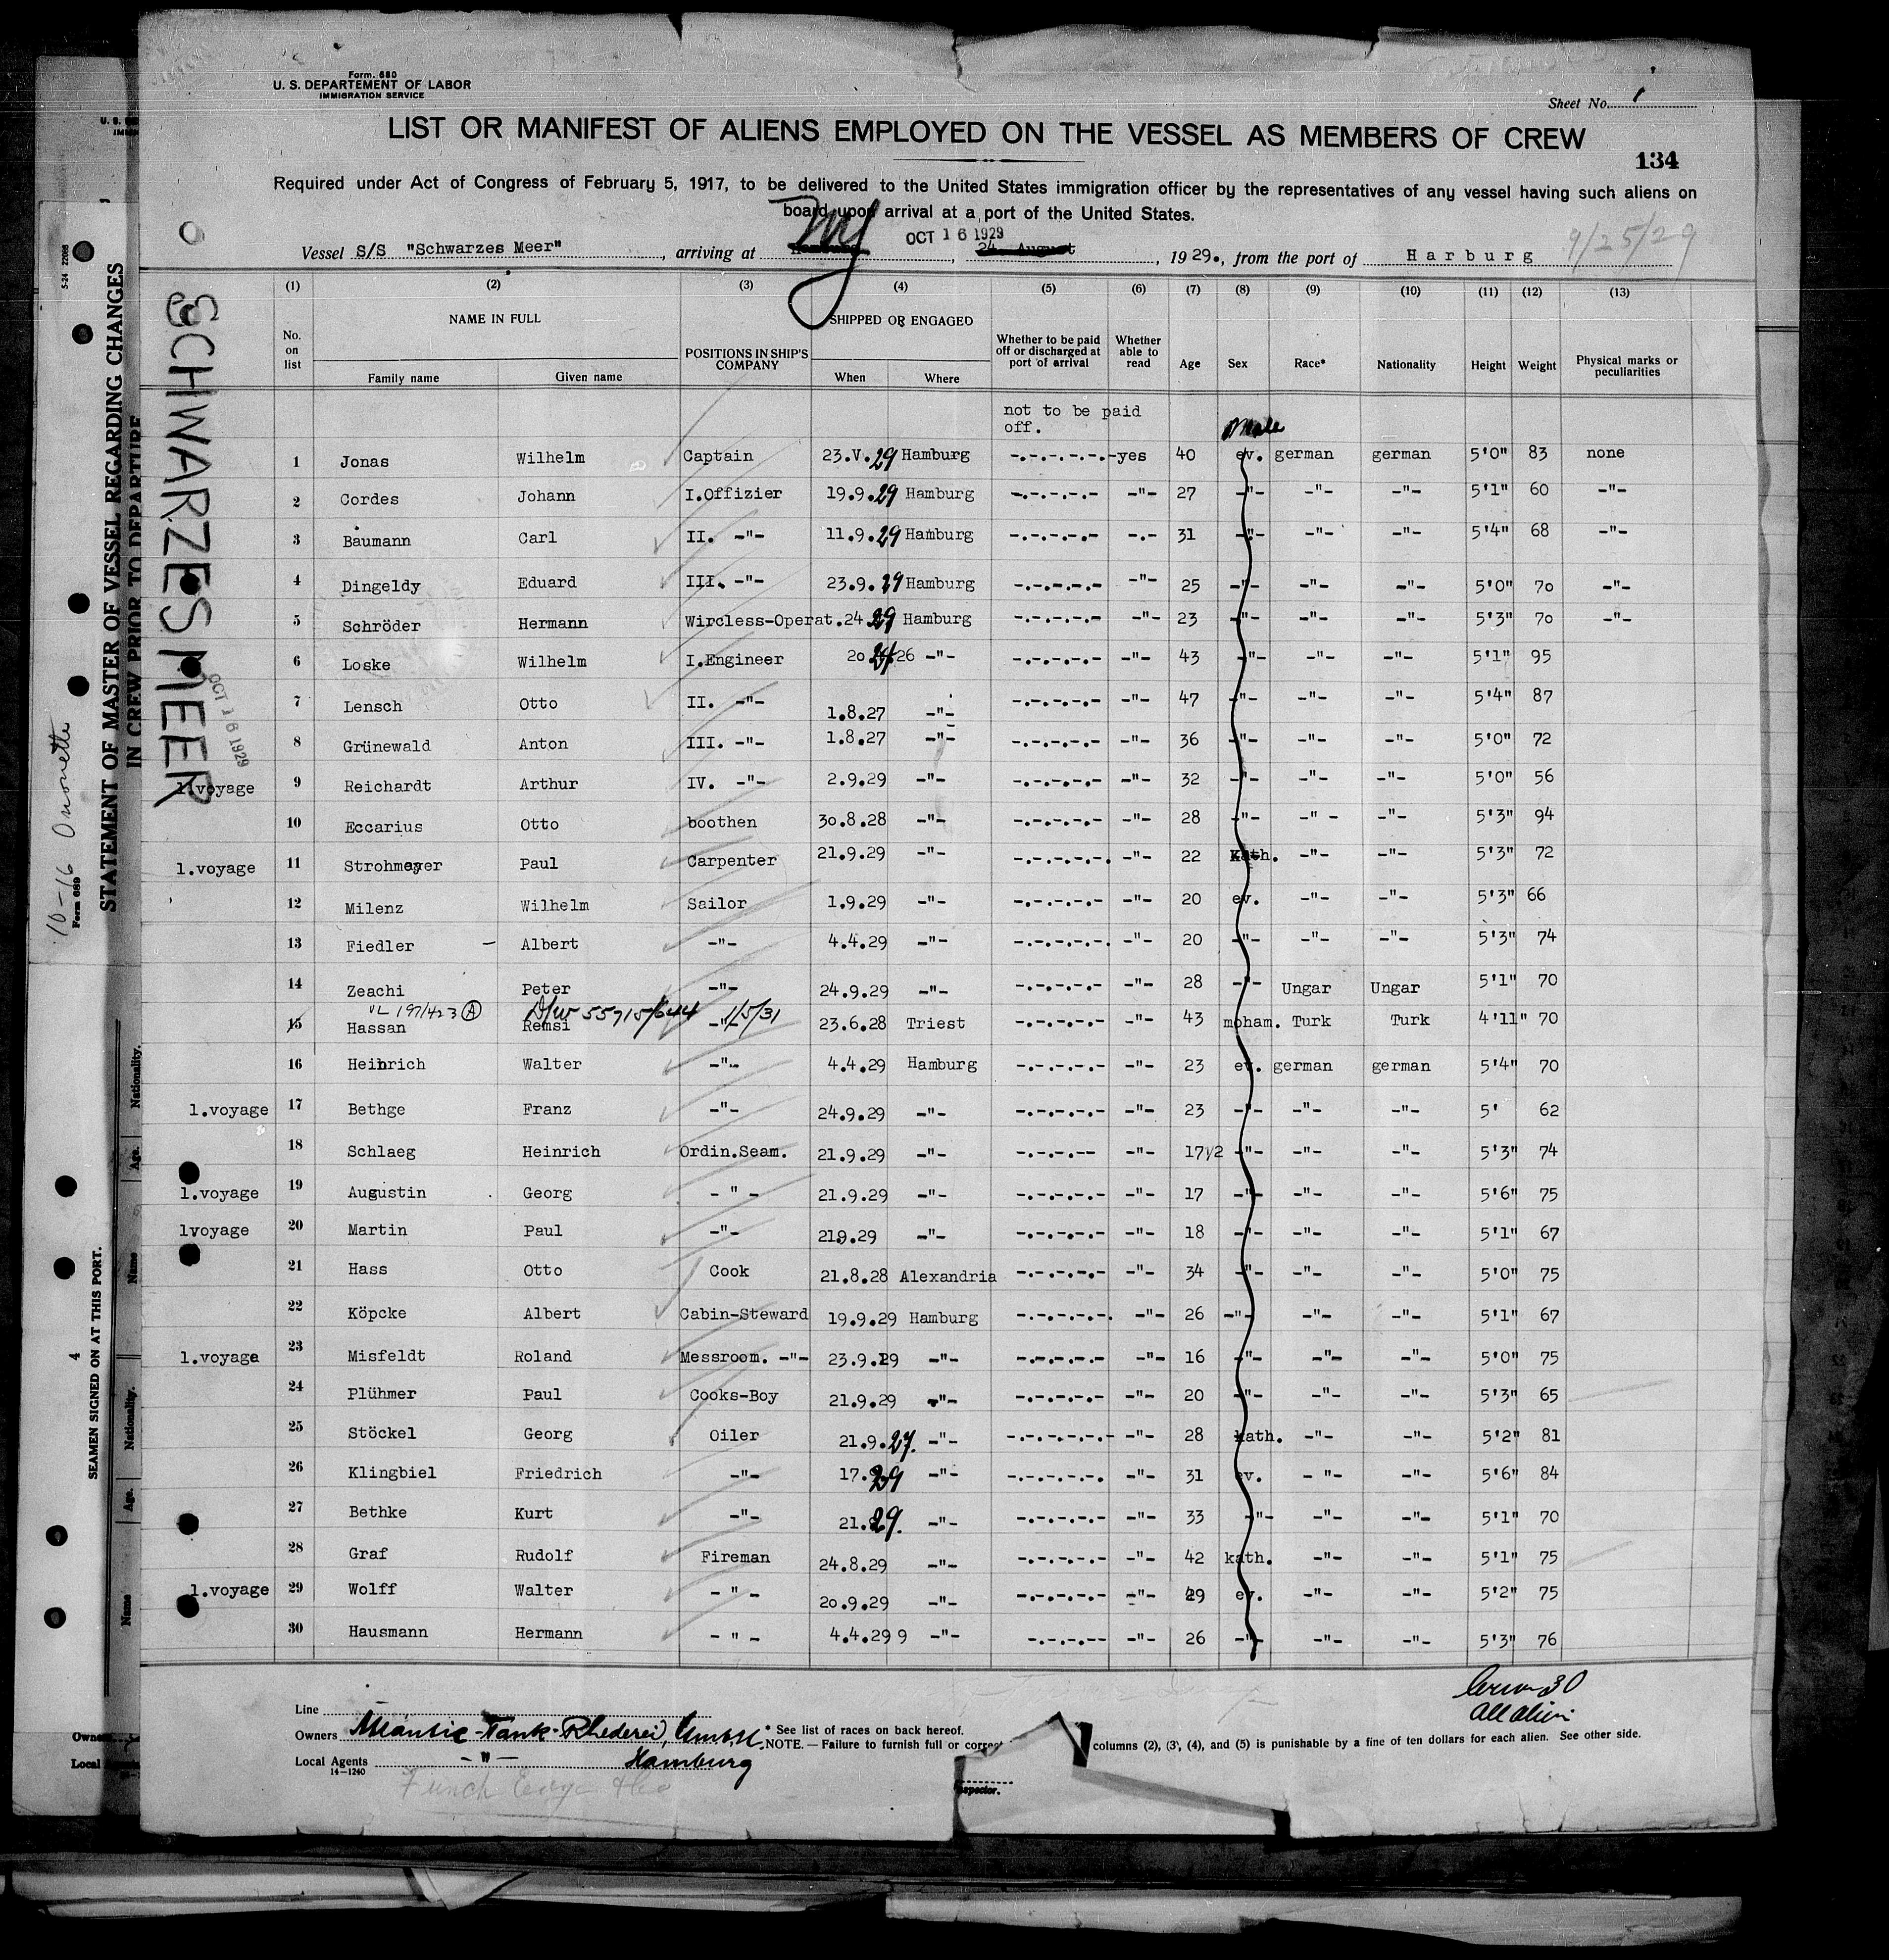 Form. 680
U. S. DEPARTEMENT OF LABOR
IMMIGRATION SERVICE
Sheet No. 1
LIST OR MANIFEST OF ALIENS EMPLOYED ON THE VESSEL AS MEMBERS OF CREW
134
Required under Act of Congress of February 5, 1917, to be delivered to the United States immigration officer by the representatives of any vessel having such aliens on
board upon arrival at a port of the United States.
Vessel S/S "Schwarzes Meer", arriving at NY OCT 16 1929, 24. August, 1929., from the port of Harburg 9/25/29
(1) (2) (3) (4) (5) (6) (7) (8) (9) (10) (11) (12) (13)
No. on list NAME IN FULL Family name Given name POSITIONS IN SHIP'S COMPANY SHIPPED OR ENGAGED When Where Whether to be paid off or discharged at port of arrival Whether able to read Age Sex Race* Nationality Height Weight Physical marks or peculiarities
not to be paid off. Male
1 Jonas Wilhelm Captain 23.V.29 Hamburg -.-.-.-.- yes 40 ev. german german 5'0" 83 none
2 Cordes Johann I.Offizier 19.9.29 Hamburg -.-.-.-.- -"- 27 -"- -"- -"- 5'1" 60 -"-
3 Baumann Carl II. -"- 11.9.29 Hamburg -.-.-.-.- -.- 31 -"- -"- -"- 5'4" 68 -"-
4 Dingeldy Eduard III. -"- 23.9.29 Hamburg -.-.-.-.- -"- 25 -"- -"- -"- 5'0" 70 -"-
5 Schröder Hermann Wircless-Operat. 24 29 Hamburg -.-.-.-.- -"- 23 -"- -"- -"- 5'3" 70 -"-
6 Loske Wilhelm I.Engineer 20 26 -"- -.-.-.-.- -"- 43 -"- -"- -"- 5'1" 95
7 Lensch Otto II. -"- 1.8.27 -"- -.-.-.-.- -"- 47 -"- -"- -"- 5'4" 87
8 Grünewald Anton III. -"- 1.8.27 -"- -.-.-.-.- -"- 36 -"- -"- -"- 5'0" 72
1.voyage 9 Reichardt Arthur IV. -"- 2.9.29 -"- -.-.-.-.- -"- 32 -"- -"- -"- 5'0" 56
10 Eccarius Otto boothen 30.8.28 -"- -.-.-.-.- -"- 28 -"- -"- -"- 5'3" 94
1.voyage 11 Strohmeyer Paul Carpenter 21.9.29 -"- -.-.-.-.-. -"- 22 Kath. -"- -"- 5'3" 72
12 Milenz Wilhelm Sailor 1.9.29 -"- -.-.-.-.- -"- 20 ev. -"- -"- 5'3" 66
13 Fiedler - Albert -"- 4.4.29 -"- -.-.-.-.-. -"- 20 -"- -"- -"- 5'3" 74
14 Zeachi Peter -"- 24.9.29 -"- -.-.-.-.- -"- 28 -"- Ungar Ungar 5'1" 70
VL 197/423 (A) D/W 55715/644 1/5/31
15 Hassan Remsi -"- 23.6.28 Triest -.-.-.-.- -"- 43 moham. Turk Turk 4'11" 70
16 Heinrich Walter -"- 4.4.29 Hamburg -.-.-.-.- -"- 23 ev. german german 5'4" 70
1.voyage 17 Bethge Franz -"- 24.9.29 -"- -.-.-.-.- -"- 23 -"- -"- -"- 5' 62
18 Schlaeg Heinrich Ordin.Seam. 21.9.29 -"- -.-.-.-- -"- 17 1/2 -"- -"- -"- 5'3" 74
1.voyage 19 Augustin Georg -"- 21.9.29 -"- -.-.-.-.- -"- 17 -"- -"- -"- 5'6" 75
1voyage 20 Martin Paul -"- 219.29 -"- -.-.-.-.- -"- 18 -"- -"- -"- 5'1" 67
21 Hass Otto Cook 21.8.28 Alexandria -.-.-.-.- -"- 34 -"- -"- -"- 5'0" 75
22 Köpcke Albert Cabin-Steward 19.9.29 Hamburg -.-.-.-.-. -"- 26 -"- -"- -"- 5'1" 67
1.voyage 23 Misfeldt Roland Messroom. -"- 23.9.29 -"- -.-.-.-.- -"- 16 -"- -"- -"- 5'0" 75
24 Plühmer Paul Cooks-Boy 21.9.29 -"- -.-.-.-.- -"- 20 -"- -"- -"- 5'3" 65
25 Stöckel Georg Oiler 21.9.27. -"- -.-.-.-.-.- -"- 28 kath. -"- -"- 5'2" 81
26 Klingbiel Friedrich -"- 17. 29 -"- -.-.-.-.- -"- 31 ev. -"- -"- 5'6" 84
27 Bethke Kurt -"- 21. 29. -"- -.-.-.-.- -"- 33 -"- -"- -"- 5'1" 70
28 Graf Rudolf Fireman 24.8.29 -"- -.-.-.-.- -"- 42 kath. -"- -"- 5'1" 75
1.voyage 29 Wolff Walter -"- 20.9.29 -"- -.-.-.-.- -"- 29 ev. -"- -"- 5'2" 75
30 Hausmann Hermann -"- 4.4.29 9 -"- -.-.-.-- -"- 26 -"- -"- -"- 5'3" 76
Crew 30
All alien
Line
Owners Atlantic-Tank-Rhederei, G.m.b.H.
Local Agents -"- Hamburg
14-1240
Funch Edye & Co
* See list of races on back hereof.
NOTE. — Failure to furnish full or correct columns (2), (3), (4), and (5) is punishable by a fine of ten dollars for each alien. See other side.
Inspector.
SCHWARZES MEER
OCT 16 1929
STATEMENT OF MASTER OF VESSEL REGARDING CHANGES
IN CREW PRIOR TO DEPARTURE
Form 689
10-16
5-24 22068
4
SEAMEN SIGNED ON AT THIS PORT.
Nationality.
Age.
Name
Nationality.
Age.
Name
Owner
Local